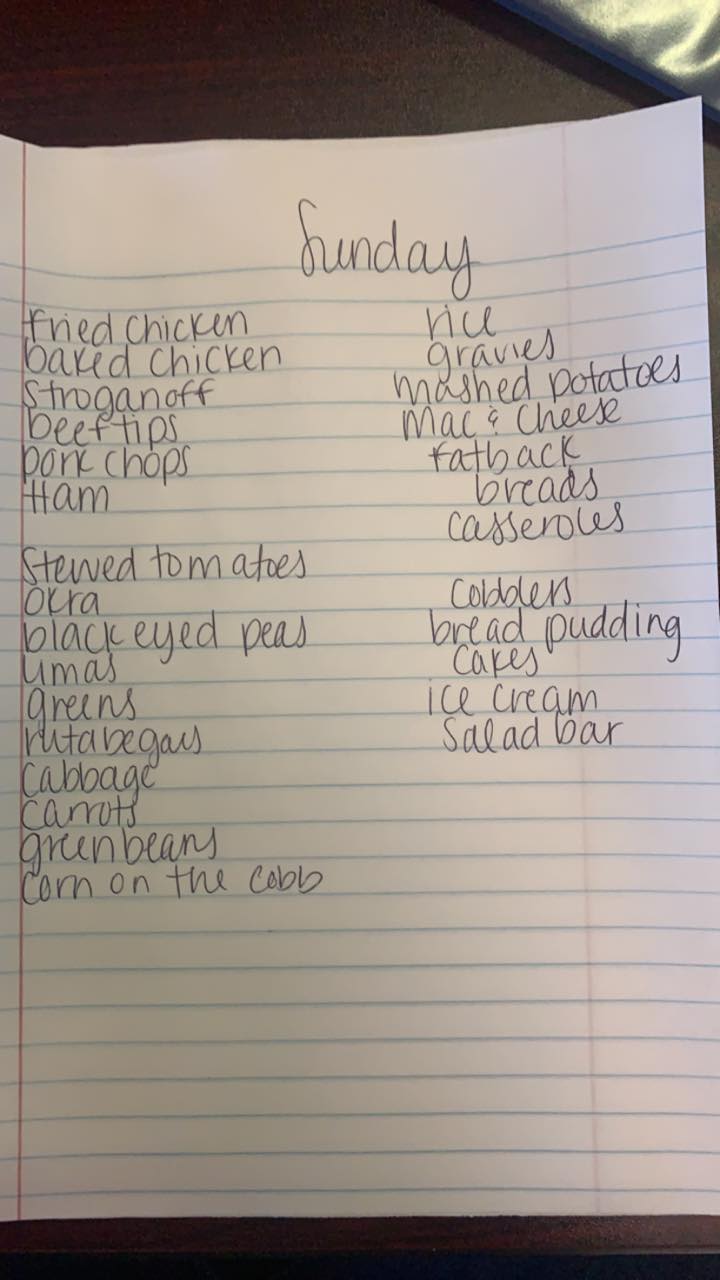 Sunday
fried chicken
baked chicken
Stroganoff
beef tips
pork chops
Ham
Stewed tomatoes
Okra
black eyed peas
limas
greens
rutabegas
Cabbage
Carrots
green beans
Corn on the cobb
rice
gravies
mashed potatoes
Mac & Cheese
fatback
breads
casseroles
Cobblers
bread pudding
Cakes
ice cream
Salad bar